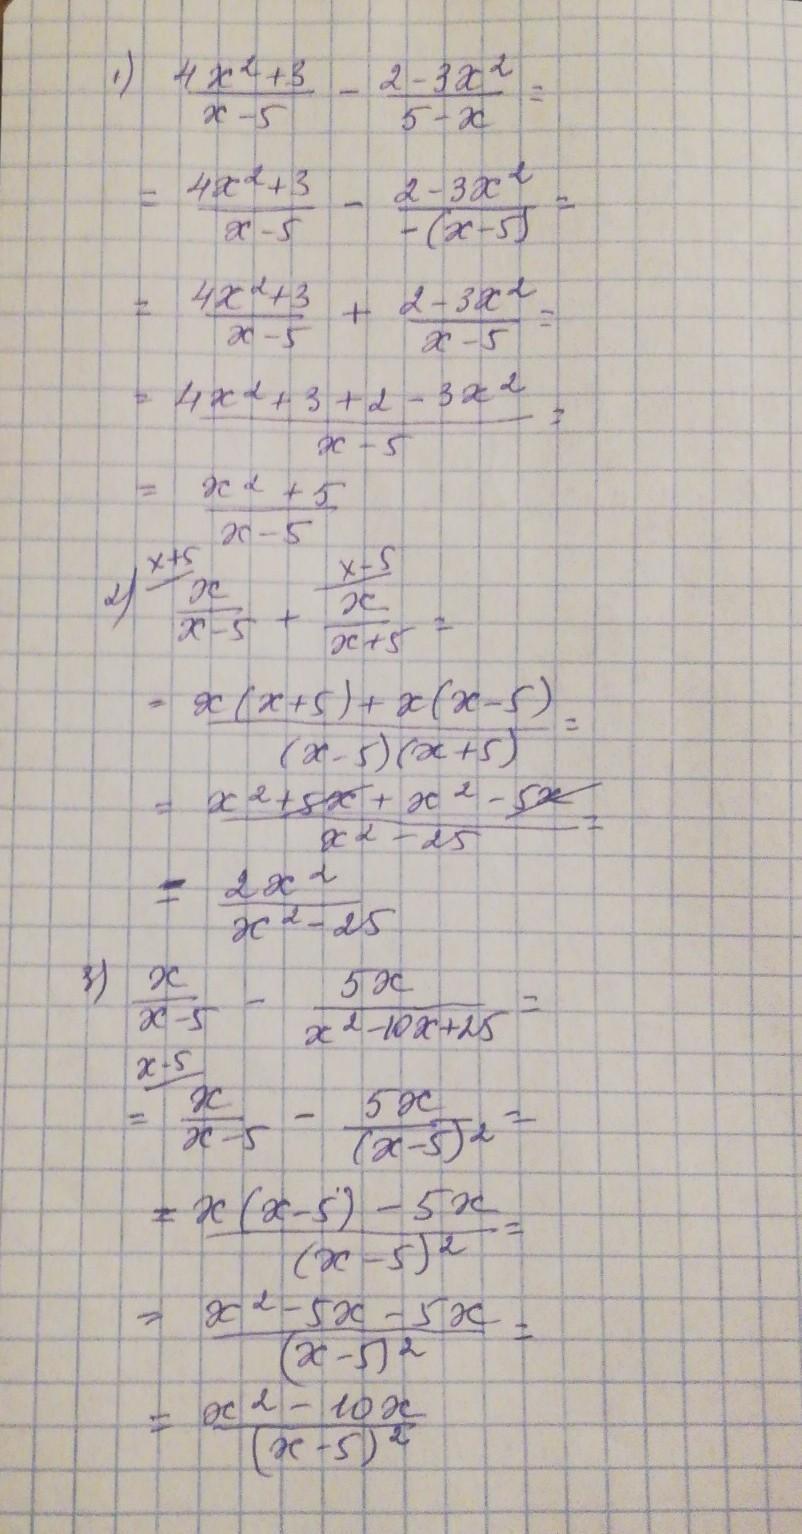 1) (4x²+3)/(x-5) - (2-3x²)/(5-x) =
= (4x²+3)/(x-5) - (2-3x²)/(-(x-5)) =
= (4x²+3)/(x-5) + (2-3x²)/(x-5) =
= (4x²+3+2-3x²)/(x-5) =
= (x²+5)/(x-5)
x+5 x-5
2) x/(x-5) + x/(x+5) =
= (x(x+5)+x(x-5))/((x-5)(x+5)) =
= (x²+5x+x²-5x)/(x²-25) =
= 2x²/(x²-25)
3) x/(x-5) - 5x/(x²-10x+25) =
x-5
= x/(x-5) - 5x/(x-5)² =
= (x(x-5)-5x)/(x-5)² =
= (x²-5x-5x)/(x-5)² =
= (x²-10x)/(x-5)²